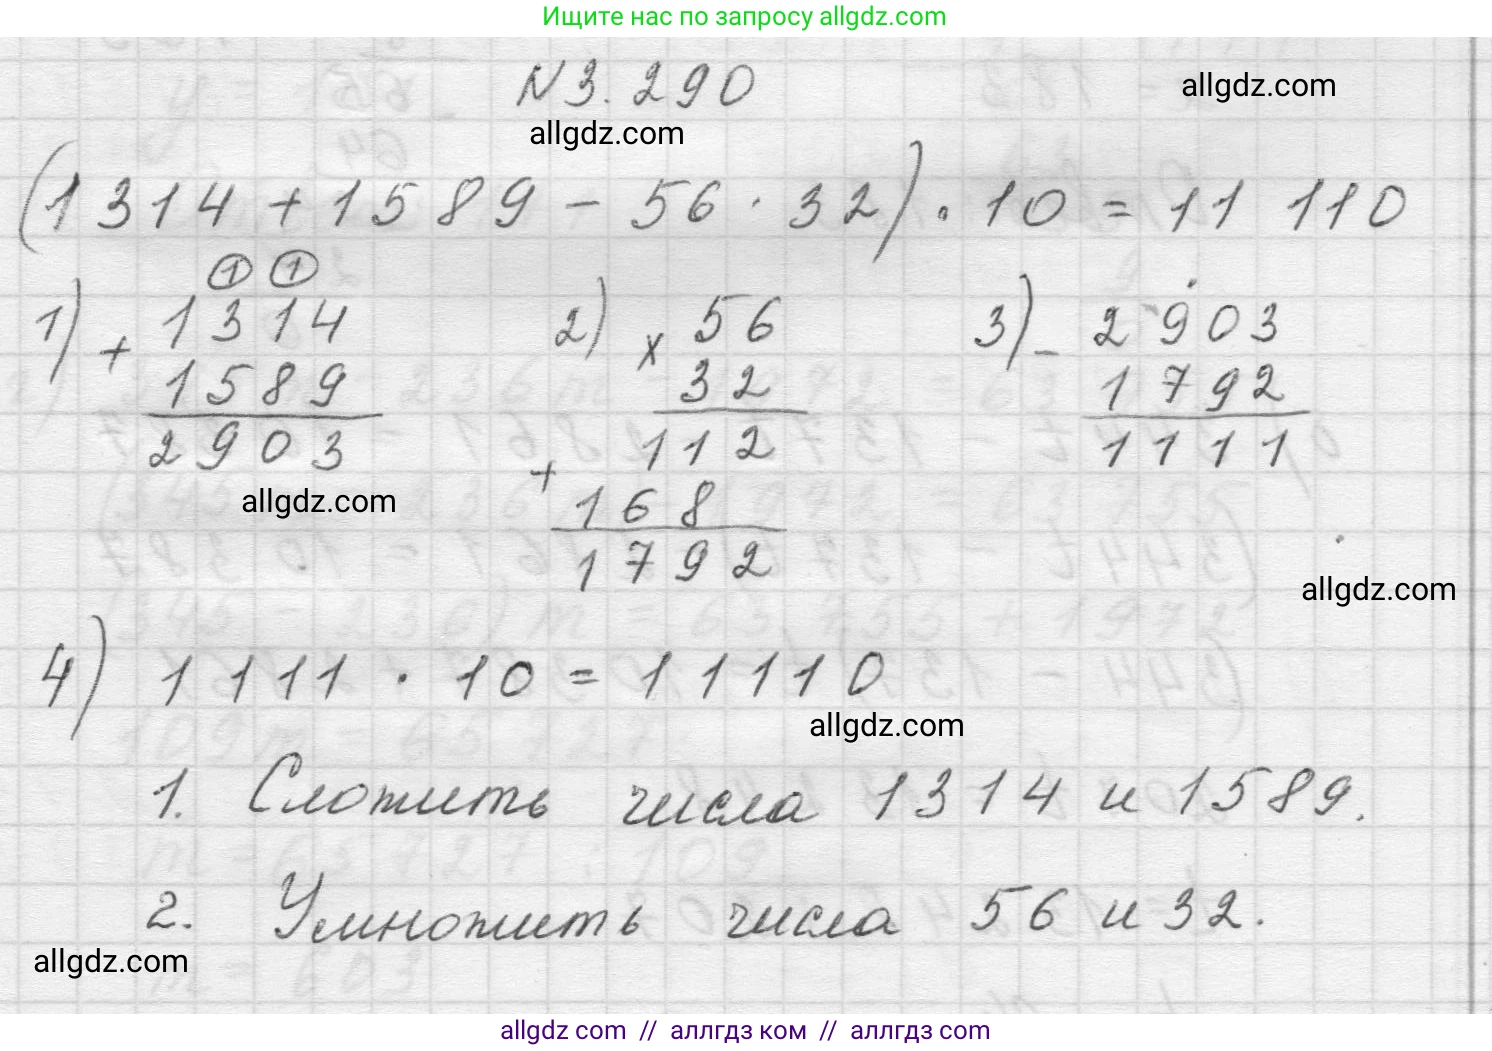 Ищите нас по запросу allgdz.com
N 3.290
allgdz.com
allgdz.com
(1314 + 1589 - 56 · 32) · 10 = 11 110
1 1
1) + 1314
1589
2903
allgdz.com
2) x 56
32
112
+
168
1792
3) - 2903
1792
1111
allgdz.com
4) 1111 · 10 = 11110
allgdz.com
1. Сложить числа 1314 и 1589.
2. Умножить числа 56 и 32.
allgdz.com
allgdz com // аллгдз ком // аллгдз com